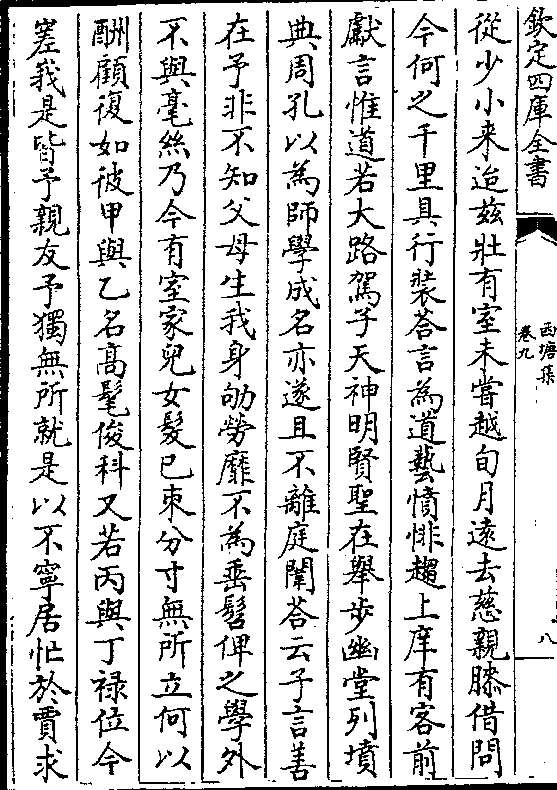 欽定四庫全書
西塘集
卷九
八
從少小来迨兹壯有室未嘗越旬月逺去慈親膝借問
今何之千里具行装荅言為道藝憤悱趨上庠有客前
獻言惟道若大路駕子天神明賢聖在舉步幽堂列墳
典周孔以為師學成名亦遂且不離庭闈荅云子言善
在予非不知父母生我身劬勞靡不為垂髫俾之學外
不與毫絲乃今有室家兒女髮已朿分寸無所立何以
酬顧復如彼甲與乙名髙髦俊科又若丙與丁禄位今
嵳我是皆予親友予獨無所就是以不寧居忙於賈求